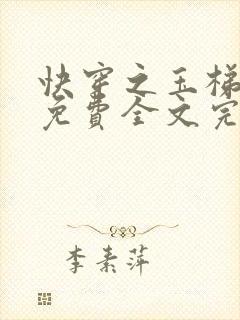 快穿之玉梯
免費全文完
李素萍